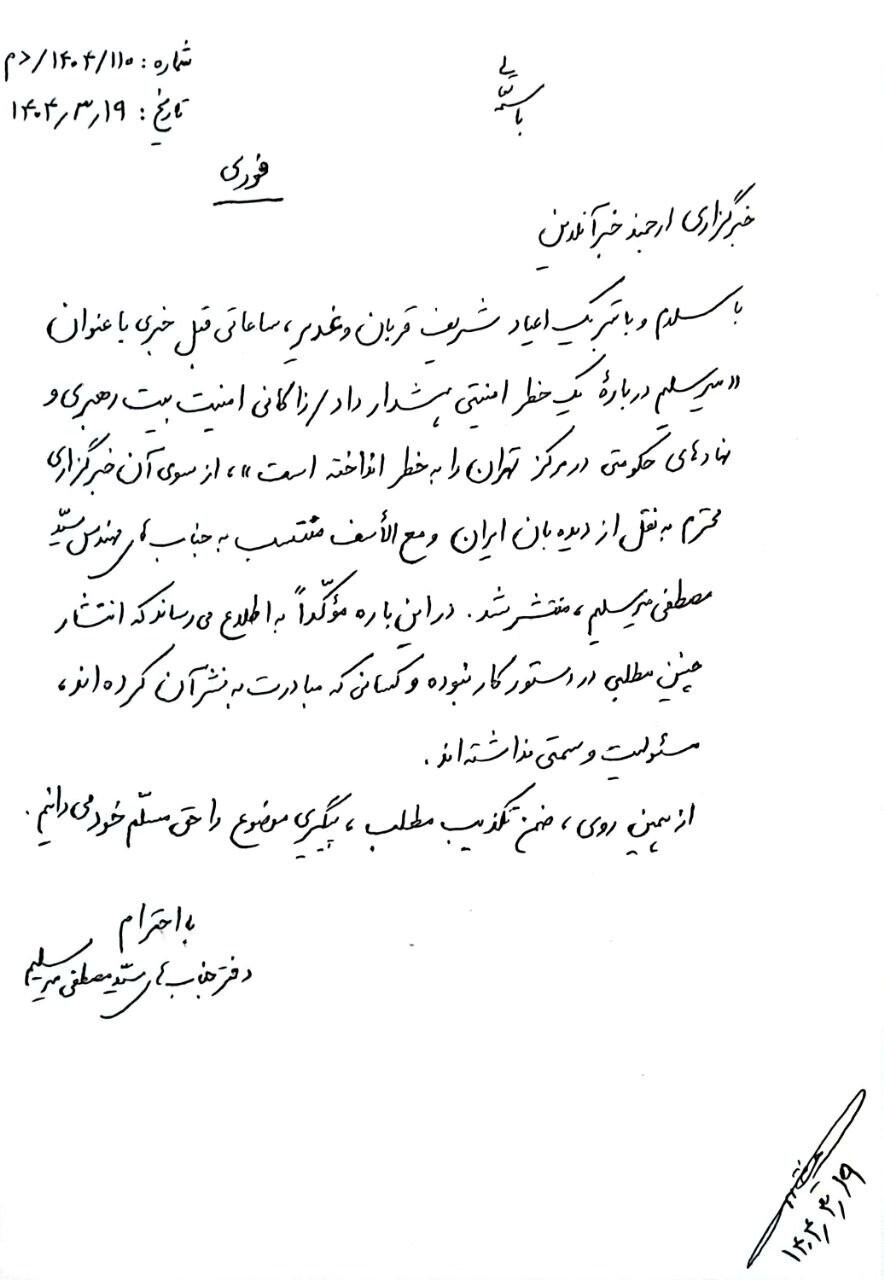 باسمه تعالی
شماره: ۱۴۰۴/۱۱۰/دم
تاریخ: ۱۴۰۴٫۳٫۱۹
فوری
خبرگزاری ارجمند خبرآنلاین
با سلام و با تبریک اعیاد شریف قربان و غدیر، ساعاتی قبل خبری با عنوان
«میرسلیم دربارهٔ یک خطر امنیتی هشدار داد/زاکانی امنیت بیت رهبری و
نهادهای حکومتی در مرکز تهران را به خطر انداخته است»، از سوی آن خبرگزاری
محترم به نقل از دیده بان ایران و مع الأسف منتسب به جناب آقای مهندس سیّد
مصطفی میرسلیم، منتشر شد. در این باره مؤکّداً به اطلاع می رساند که انتشار
چنین مطلبی در دستور کار نبوده و کسانی که مبادرت به نشر آن کرده اند،
مسئولیت و سمتی نداشته اند.
از همین روی، ضمن تکذیب مطلب، پیگیری موضوع را حق مسلّم خود می دانیم.
با احترام
دفتر جناب آقای سیّد مصطفی میرسلیم
۱۴۰۴٫۳٫۱۹